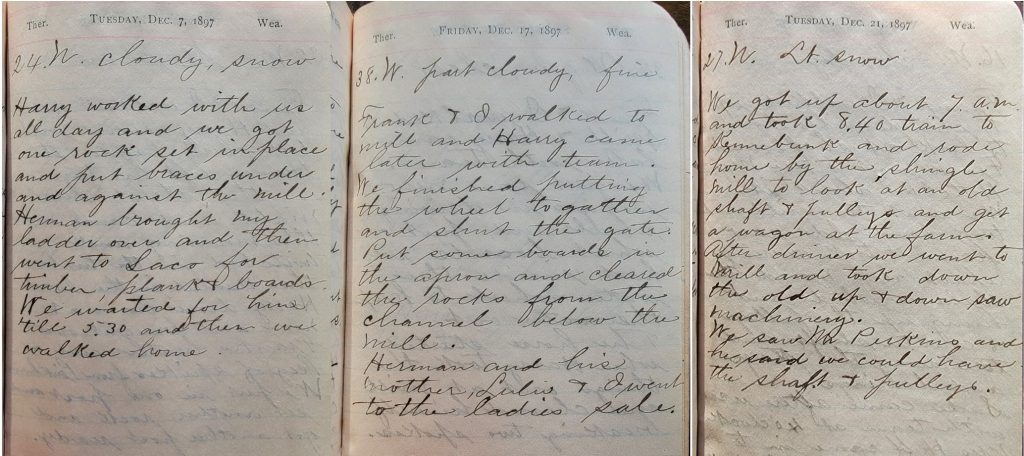 Ther. TUESDAY, DEC. 7, 1897 Wea.
24. W. cloudy, snow
Harry worked with us
all day and we got
one rock set in place
and put braces under
and against the mill.
Herman brought my
ladder over and then
went to Saco for
timber, plank & boards.
We waited for him
till 5.30 and then we
walked home.
Ther. FRIDAY, DEC. 17, 1897 Wea.
38. W. part cloudy, fine
Frank & I walked to
mill and Harry came
later with team.
We finished putting
the wheel to gather
and shut the gate.
Put some boards in
the apron and cleared
the rocks from the
channel below the
mill.
Herman and his
mother, Lulu & I went
to the ladies sale.
Ther. TUESDAY, DEC. 21, 1897 Wea.
27. W. Lt. snow
We got up about 7 a.m.
and took 8.40 train to
Kennebunk and rode
home by the shingle
mill to look at an old
shaft & pulleys and get
a wagon at the farm.
After dinner we went to
mill and took down
the old up & down saw
machinery.
We saw Mr Perkins and
he said we could have
the shaft & pulleys.